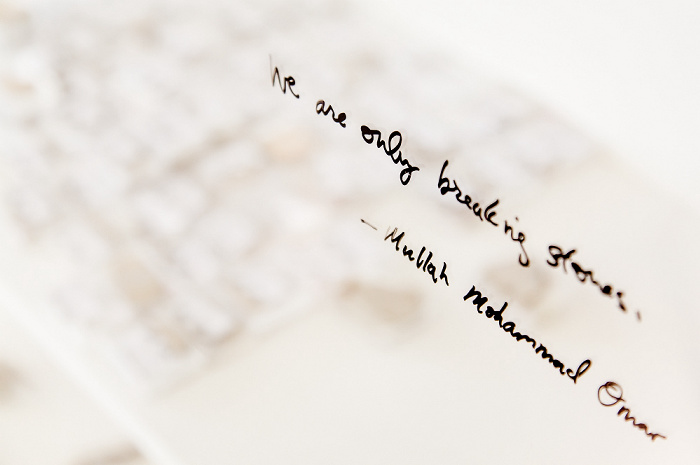 We are only breaking stones.
- Mullah Mohammad Omar